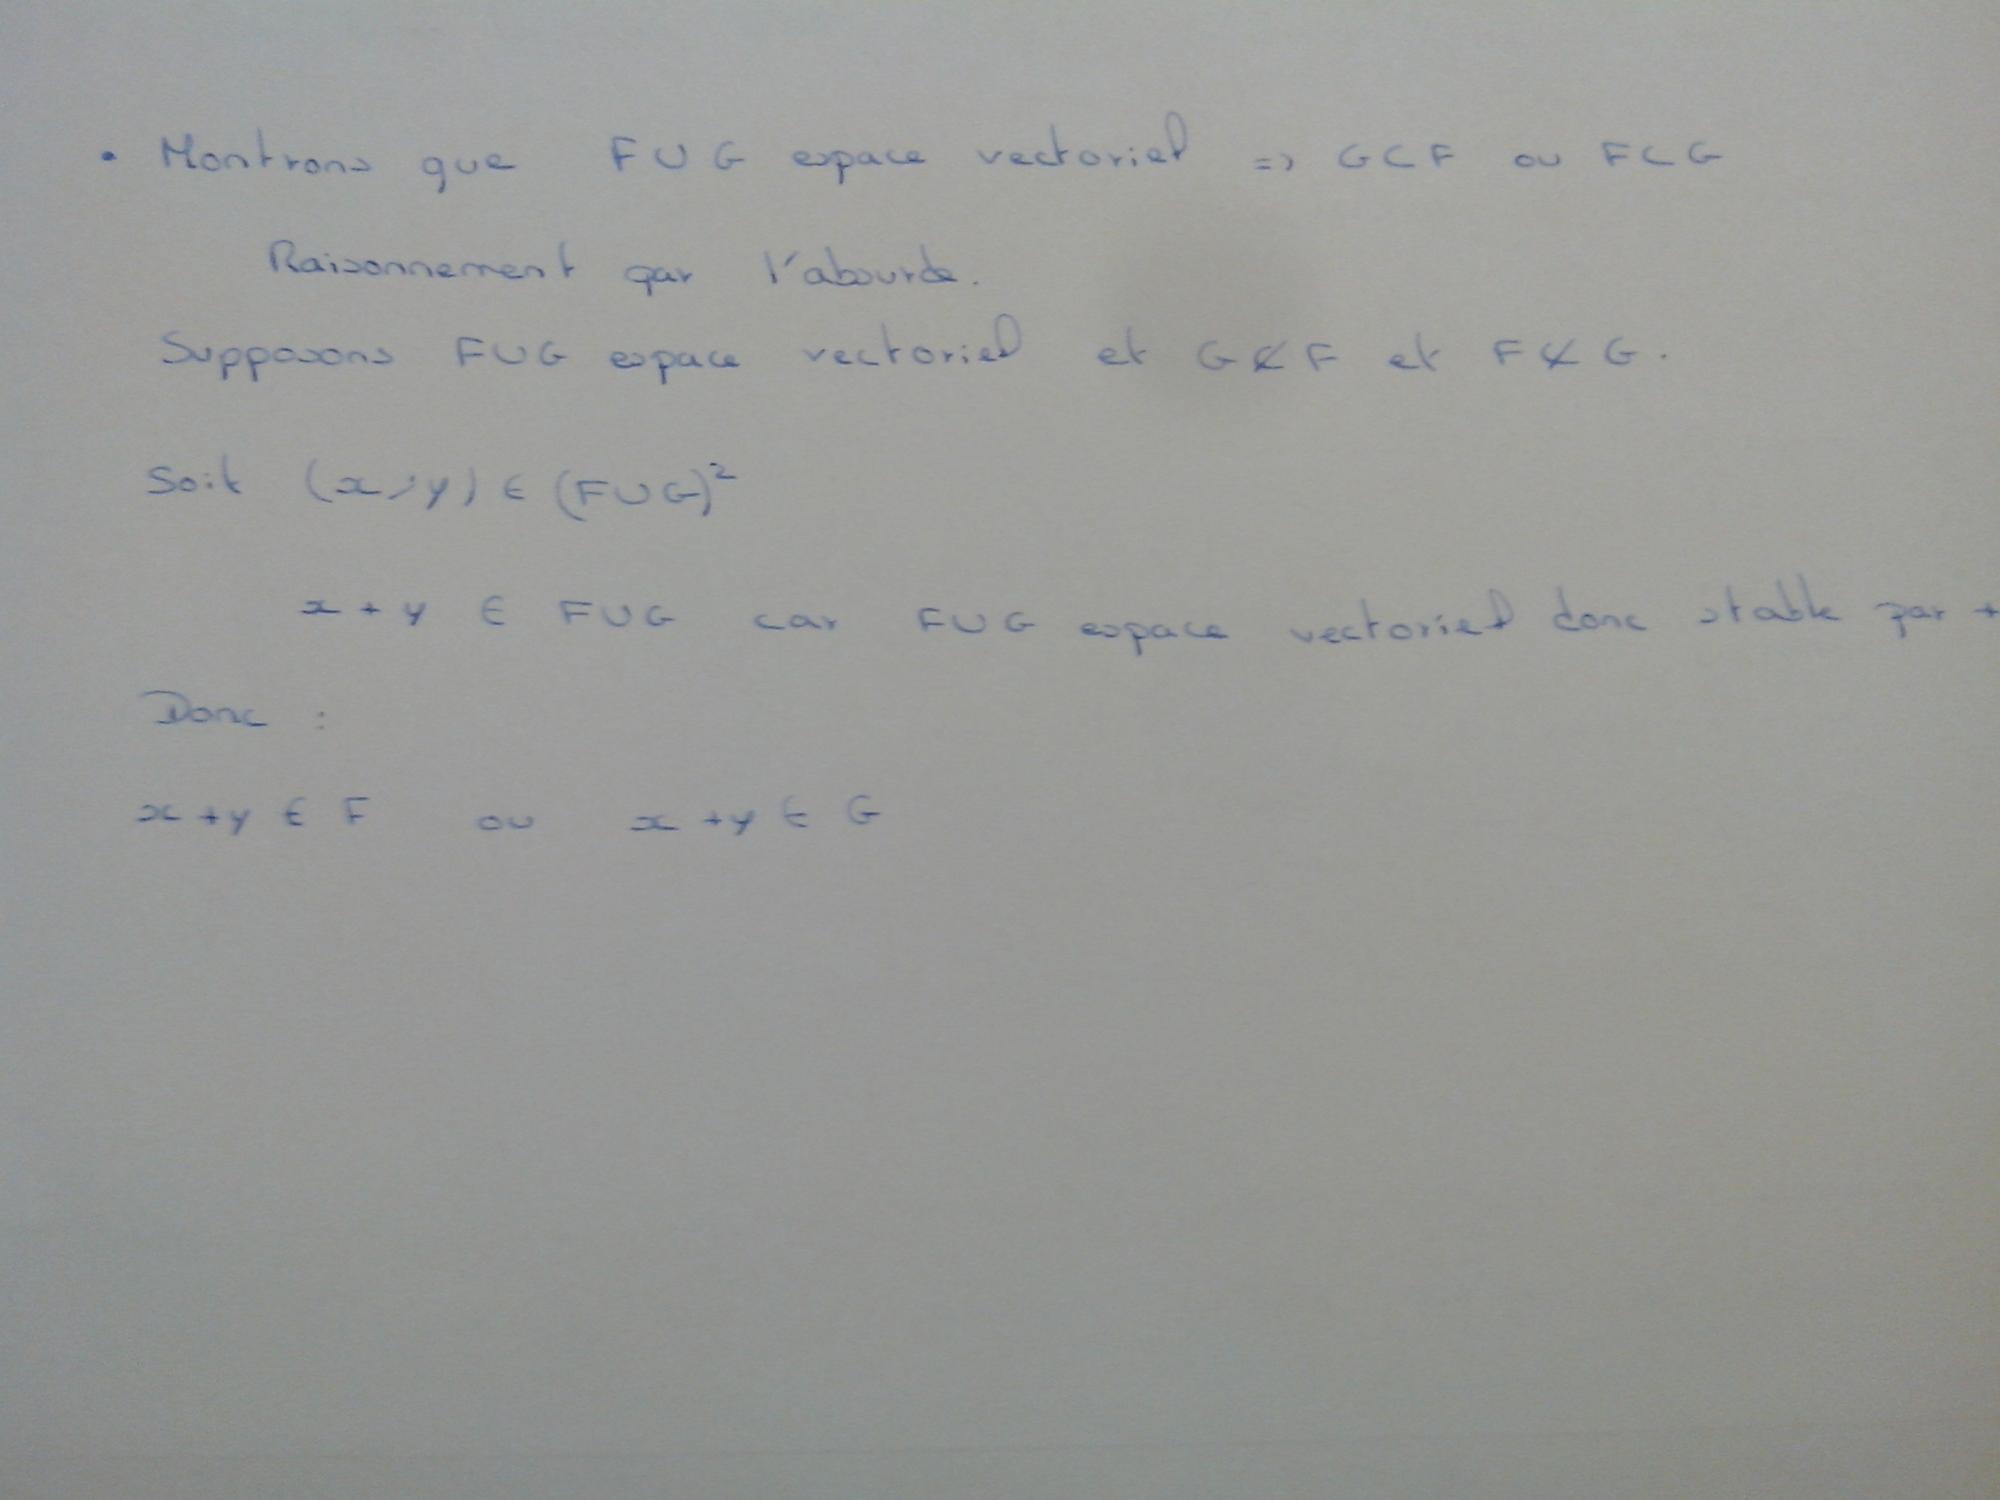 • Montrons que F∪G espace vectoriel => G⊂F ou F⊂G
Raisonnement par l'absurde.
Supposons F∪G espace vectoriel et G⊄F et F⊄G.
Soit (x,y) ∈ (F∪G)²
x+y ∈ F∪G car F∪G espace vectoriel donc stable par +
Donc :
x+y ∈ F ou x+y ∈ G